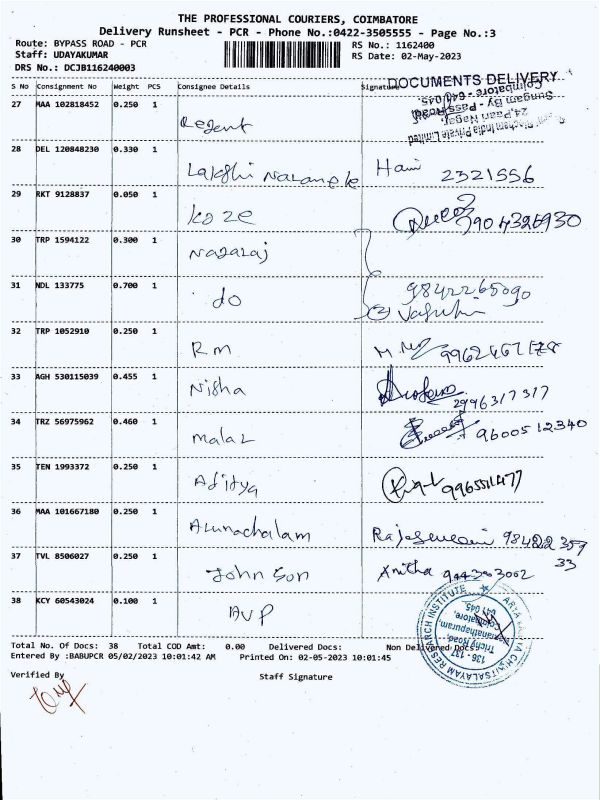 THE PROFESSIONAL COURIERS, COIMBATORE
Delivery Runsheet - PCR - Phone No.:0422-3505555 - Page No.:3
Route: BYPASS ROAD - PCR RS No.: 1162400
Staff: UDAYAKUMAR RS Date: 02-May-2023
DRS No.: DCJB116240003
S No Consignment No Weight PCS Consignee Details Signature
DOCUMENTS DELIVERY
Coimbatore - 641 045.
Sungam By - Pass Road,
24, Paari Nagar,
India Private Limited
27 MAA 102818452 0.250 1
Regent
28 DEL 120848230 0.330 1
Lakshi 2321556
29 RKT 9128837 0.050 1
koze
30 TRP 1594122 0.300 1
Nagaraj
31 NDL 133775 0.700 1
do
32 TRP 1052910 0.250 1
Rm
33 AGH 530115039 0.455 1
Nisha
34 TRZ 56975962 0.460 1
malar 9600512340
35 TEN 1993372 0.250 1
Aditya
36 MAA 101667180 0.250 1
Arunachalam 98422 359
33
37 TVL 8506027 0.250 1
Johnson Anitha
38 KCY 60543024 0.100 1
AVP
RESEARCH INSTITUTE
136 - 137
Trichy Road,
Ramanathapuram,
Coimbatore,
641 045
Total No. Of Docs: 38 Total COD Amt: 0.00 Delivered Docs: Non Delivered Docs:
Entered By :BABUPCR 05/02/2023 10:01:42 AM Printed On: 02-05-2023 10:01:45
Verified By Staff Signature